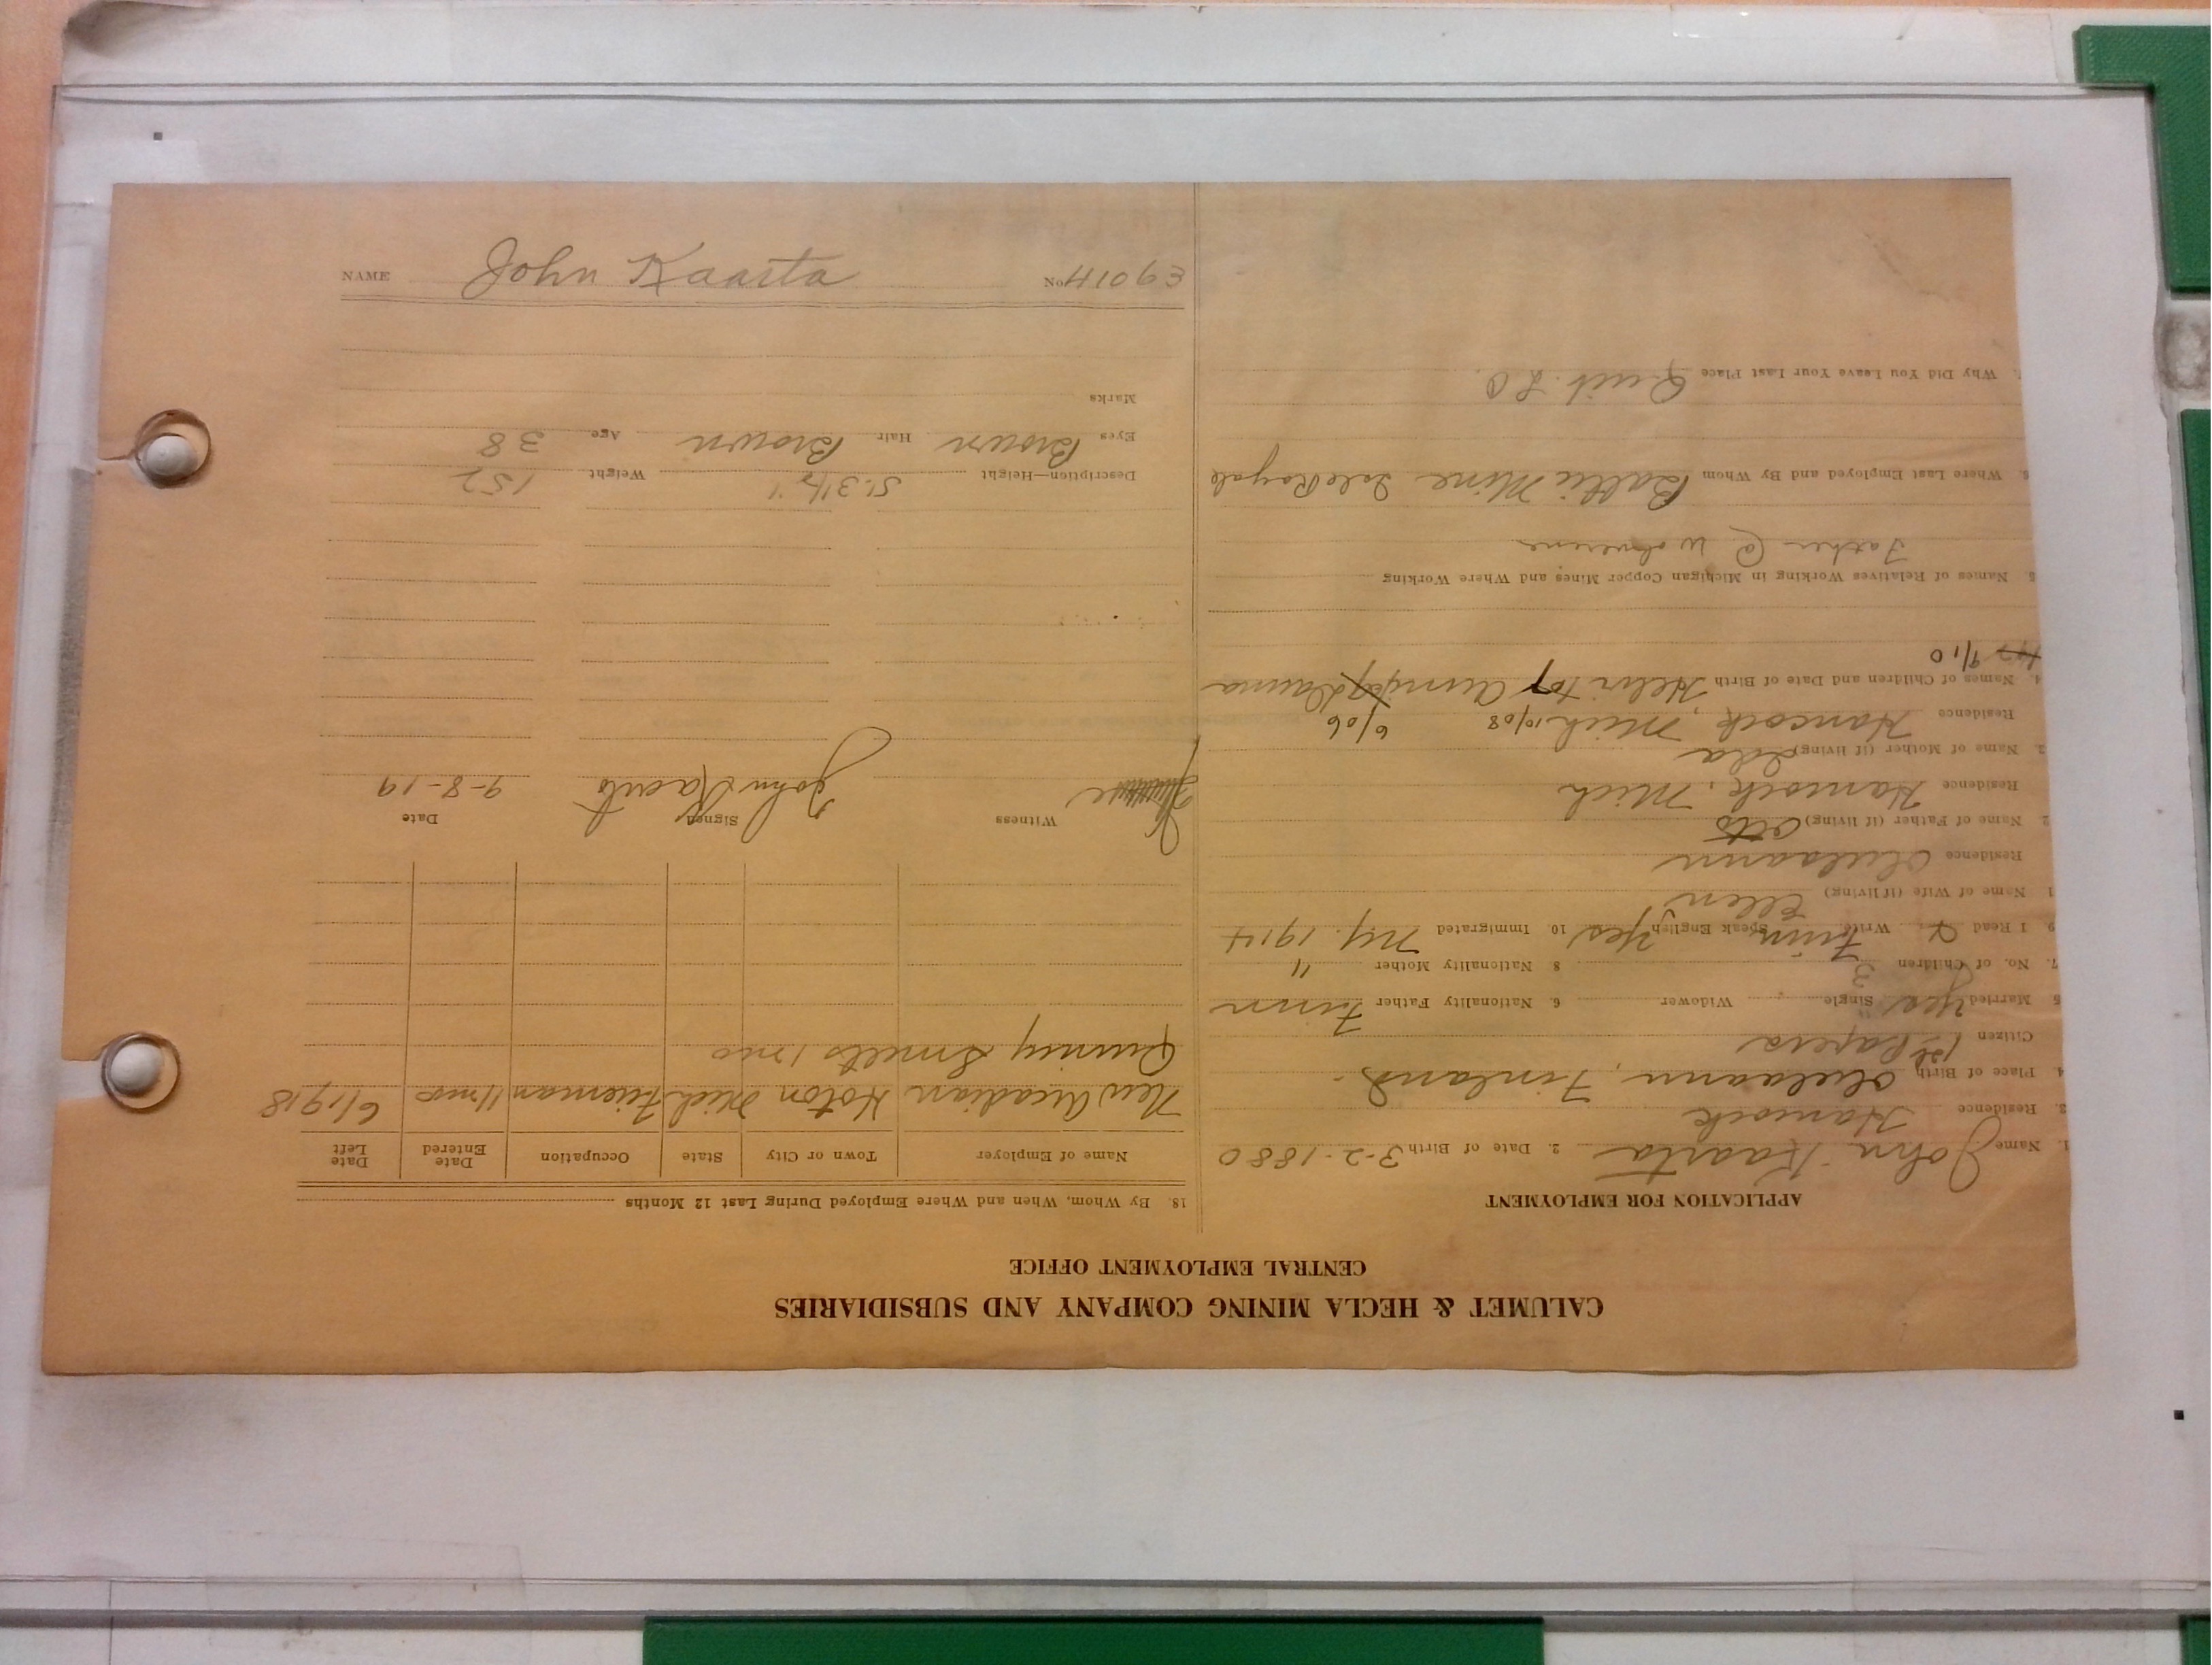 CALUMET & HECLA MINING COMPANY AND SUBSIDIARIES
CENTRAL EMPLOYMENT OFFICE
APPLICATION FOR EMPLOYMENT
1. Name John Kaarta 2. Date of Birth 3-2-1880
3. Residence Hancock
4. Place of Birth Oulaann, Finland
Citizen 1st Papers
5 Married Yes Single Widower 6. Nationality Father Finn
7. No. of Children 3 8 Nationality Mother "
9 I Read Write Finn Speak English Yes 10. Immigrated N.Y. 1914
1 Name of Wife (if living) Ellen
Residence Oulaann
2. Name of Father (if living)
Residence Hancock, Mich
3. Name of Mother (if living) Lda
Residence Hancock, Mich 10/08 6/06
4. Names of Children and Date of Birth
9/10
5 Names of Relatives Working in Michigan Copper Mines and Where Working
Father @ Wolverine
6. Where Last Employed and By Whom Baltic Mine Isle Royale
7. Why Did You Leave Your Last Place Quit. L O
18. By Whom, When and Where Employed During Last 12 Months
Name of Employer Town or City State Occupation Date Entered Date Left
New Arcadian Hoton Mich Fireman 11 mo 6/1918
Quincy Smelts 1 mo
Witness Signed Date
John Kaarto 9-8-19
Description—Height 5'.3 1/2" Weight 152
Eyes Brown Hair Brown Age 38
Marks
NAME John Kaarta No E9014